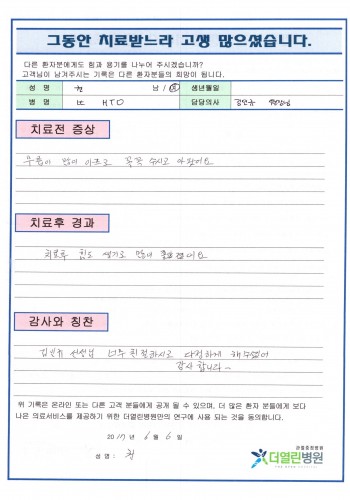 그동안 치료받느라 고생 많으셨습니다.
다른 환자분에게도 힘과 용기를 나누어 주시겠습니까?
고객님이 남겨주시는 기록은 다른 환자분들의 희망이 됩니다.
성 명 남 / 여 생년월일
병 명 HTO 담당의사
치료전 증상
무릎이 많이 아프고 쑤시고
치료후 경과
치료후 힘도 생기고 많이
감사와 칭찬
선생님 너무 친절하시고 다정하게 해주셨어
감사합니다~
위 기록은 온라인 또는 다른 고객 분들에게 공개 될 수 있으며, 더 많은 환자 분들에게 보다
나은 의료서비스를 제공하기 위한 더열린병원만의 연구에 사용 되는 것을 동의합니다.
2017 년 6 월 6 일
성 명 :
관절중점병원
더열린병원
THE OPEN HOSPITAL